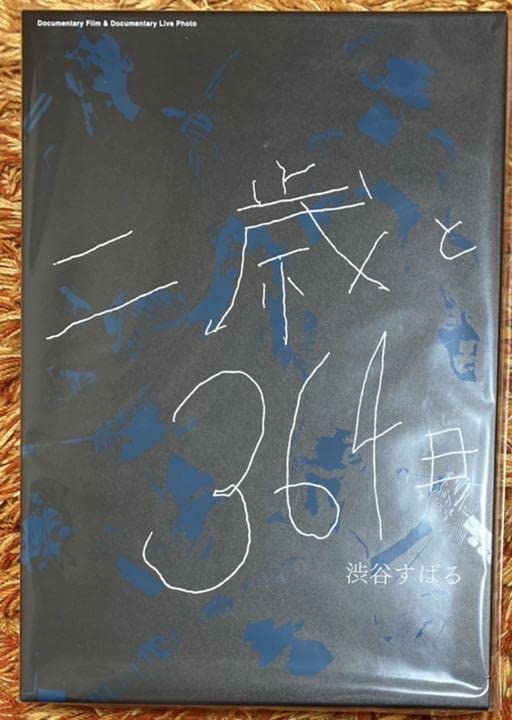 Documentary Film & Documentary Live Photo
二歳と
364日
渋谷すばる